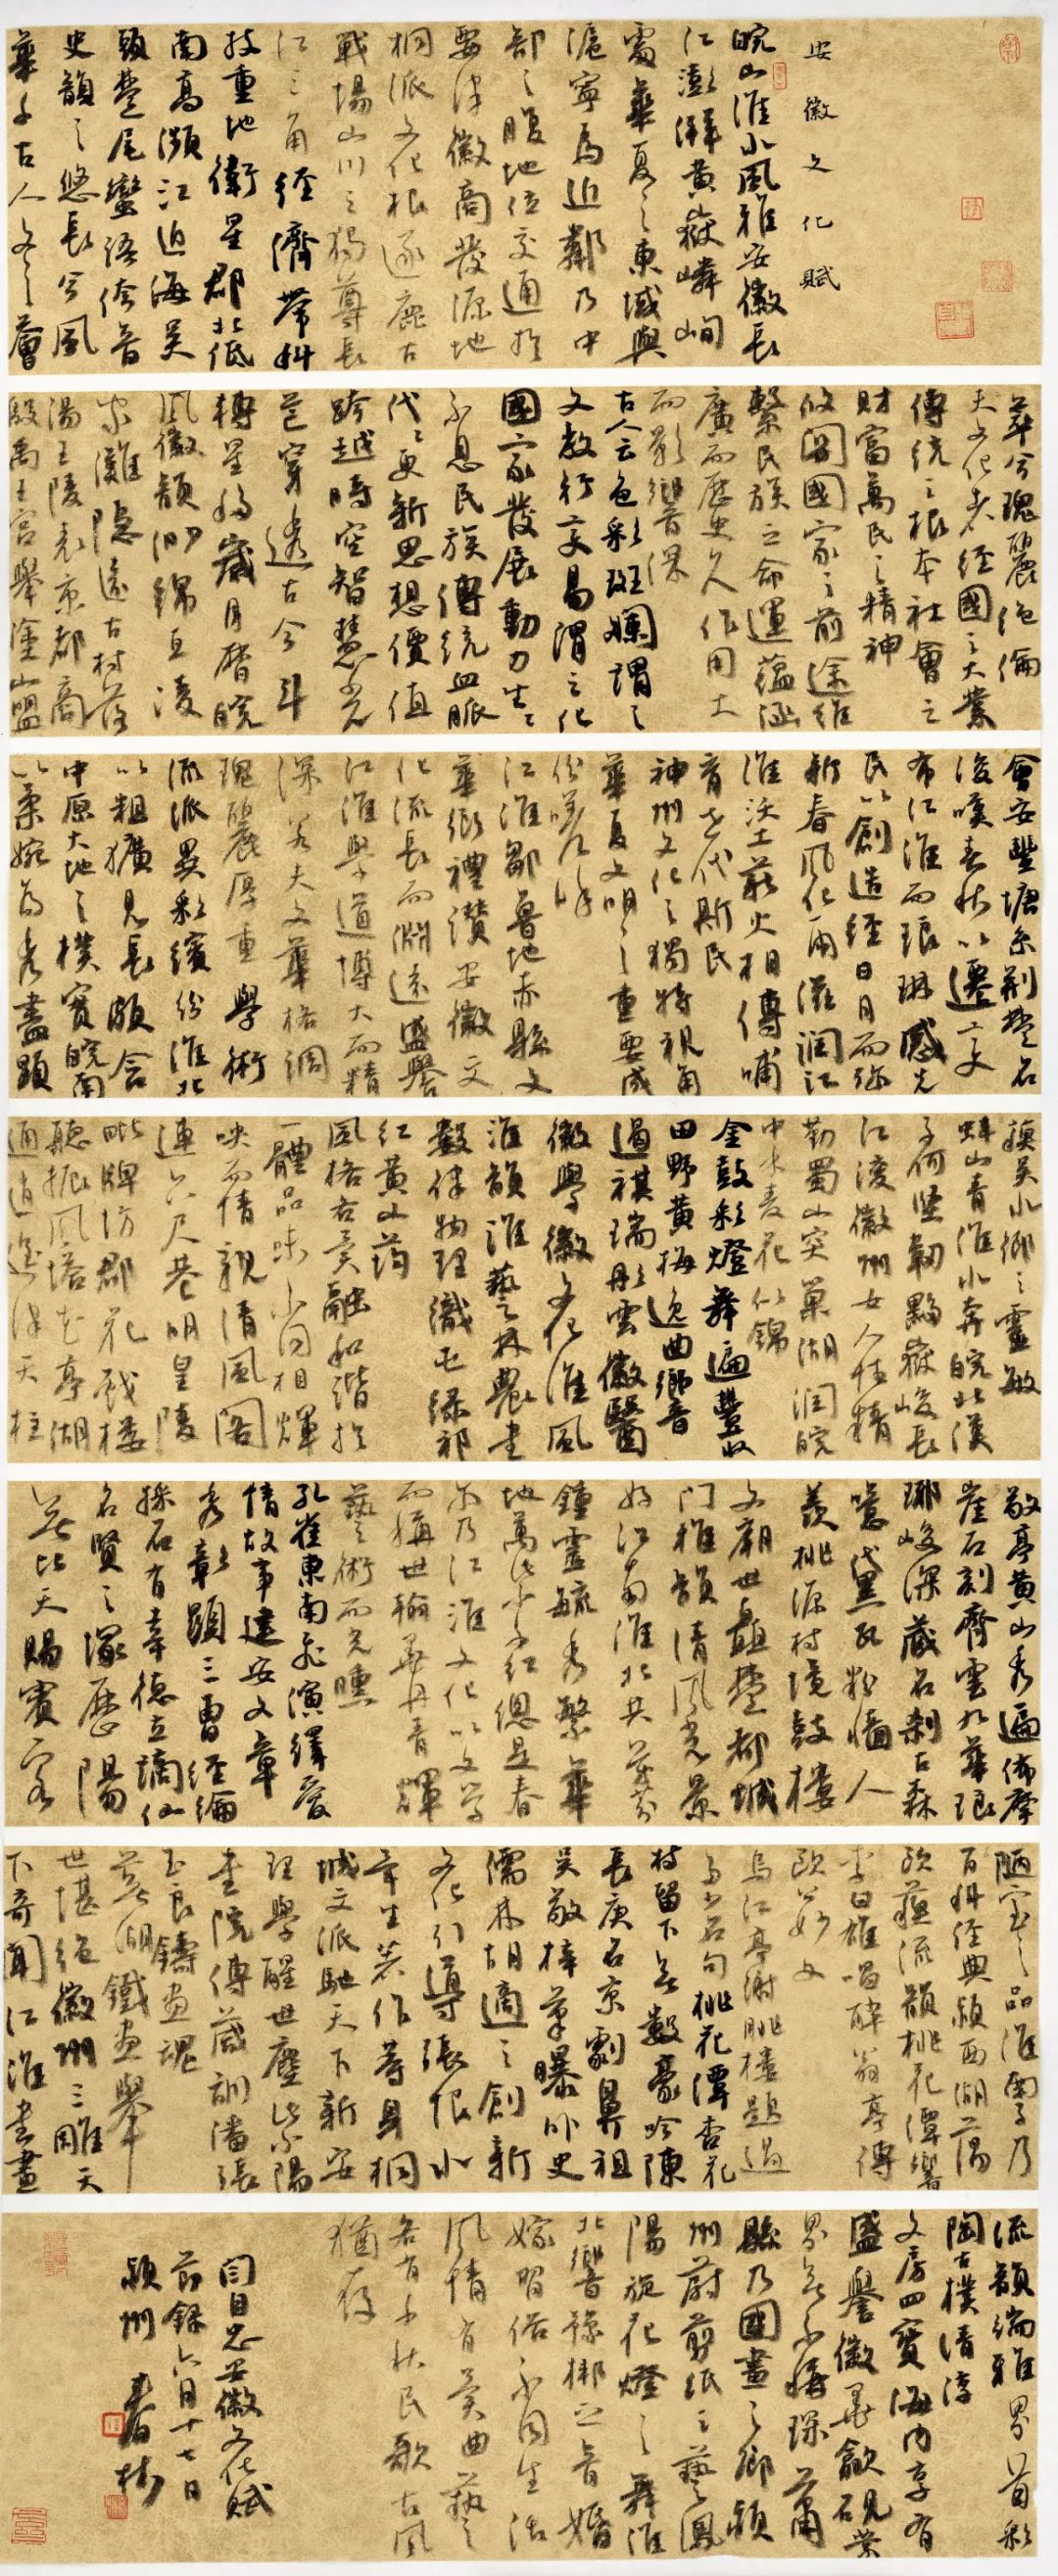 安徽文化賦
皖山淮水風雅安徽長
江澎湃黃嶽嶙峋
處華夏之東域與
滬寧為近鄰乃中
部之腹地位交通於
要津徽商發源地
桐派文化根逐鹿古
戰場山川之獨尊長
江三角經濟帶科
技重地衛星郡北低
南高瀕江迫海吳
頭楚尾蠻語侉音
史韻之悠長兮風
華千古人文之薈
萃兮瑰麗絕倫
夫文化者經國之大業
傳統之根本社會之
財富萬民之精神
攸關國家之前途維
繫民族之命運蘊涵
廣而歷史久作用士
而影響深
古人云色彩斑斕謂之
文教行交易謂之化
國家發展動力生生
不息民族傳統血脈
代代更新思想價值
跨越時空智慧光
芒穿透古今斗
轉星移歲月磨皖
風徽韻沏錦亙凌
家灘隱遠古村落
湯王陵表京都高
殿禹王宮舉塗山盟
會安豐塘系荊楚名
後嘆春秋以遷文
布江淮而琅琳感先
民以創造經日月而彌
新春風化雨滋潤江
淮沃土薪火相傳哺
育世代斯民
神州文化之獨特視角
華夏文明之重要成
份嗟乎
江淮鄒魯地赤縣文
華鄉禮讚安徽文
化流長而淵遠盛譽
江淮學道博大而精
深若夫文華格調
瑰麗厚重學術
流派異彩繽紛淮北
以粗獷見長頗含
中原大地之樸實皖南
以柔婉為秀盡顯
換吳水鄉之靈敏
蚌山青淮水奔皖北漢
子何堅韌黟嶽峻長
江凌徽州女人恁精
勤蜀山突巢湖潤皖
中水麦花似錦
金鼓彩燈舞遍豐收
田野黃梅逸曲鄉音
過祺瑞彤雲徽醫
徽學徽文化淮風
淮韻淮藝林農畫
數律物理織屯綠祁
紅黃山筠
風格各異融和諧於
一體品味不同相輝
映而情親清風閣
連六尺巷明皇陵
毗牌坊郡花戲樓
聽振風塔花亭湖
通逍遙津天柱
敬亭黃山秀遍佈摩
崖石刻齊雲九華琅
琊峻深藏名剎古森
噫黛瓦粉牆人
羨桃源村境鼓樓
文廟世矗楚都城
門雅韻清風光景
好江南淮北共藏
鍾靈毓秀繁華
地萬紫千紅總是春
尔乃江淮文化以文學
而稱世翰墨丹青輝
藝術而光曛
孔雀東南飛演繹愛
情故事建安文章
秀彰顯三曹經綸
採石有幸德立謫仙
名賢之塚歷陽
無比天賜賓客
陋室之品淮南子乃
百科經典潁西湖蕩
歐蘇流韻桃花潭響
李白雄唱醉翁亭傳
歐公妙文
烏江亭謝朓樓題過
多少名句桃花潭杏花
村留下無數豪吟陳
長庚名京劇鼻祖
吳敬梓筆曝外史
儒林胡適之創新
文化引導張恨水
平生著作等身桐
城文派馳天下新安
理學醒世塵紫陽
書院傳箴訓潘張
玉良鑄畫魂
蕪湖鐵畫舉
世堪絕徽州三雕天
下奇聞江淮書畫
流韻端雅界首彩
陶古樸清淳
文房四寶海內享有
盛譽徽墨歙硯業
界無不稱琛蕭
縣乃國畫之鄉潁
州蔚剪紙之藝鳳
陽旋花燈之舞淮
北響豫梆之音婚
嫁習俗不同生活
風情有異曲藝
各有千秋民歌古風
猶存
閆自忠安徽文化賦
節錄六月十七日
潁州